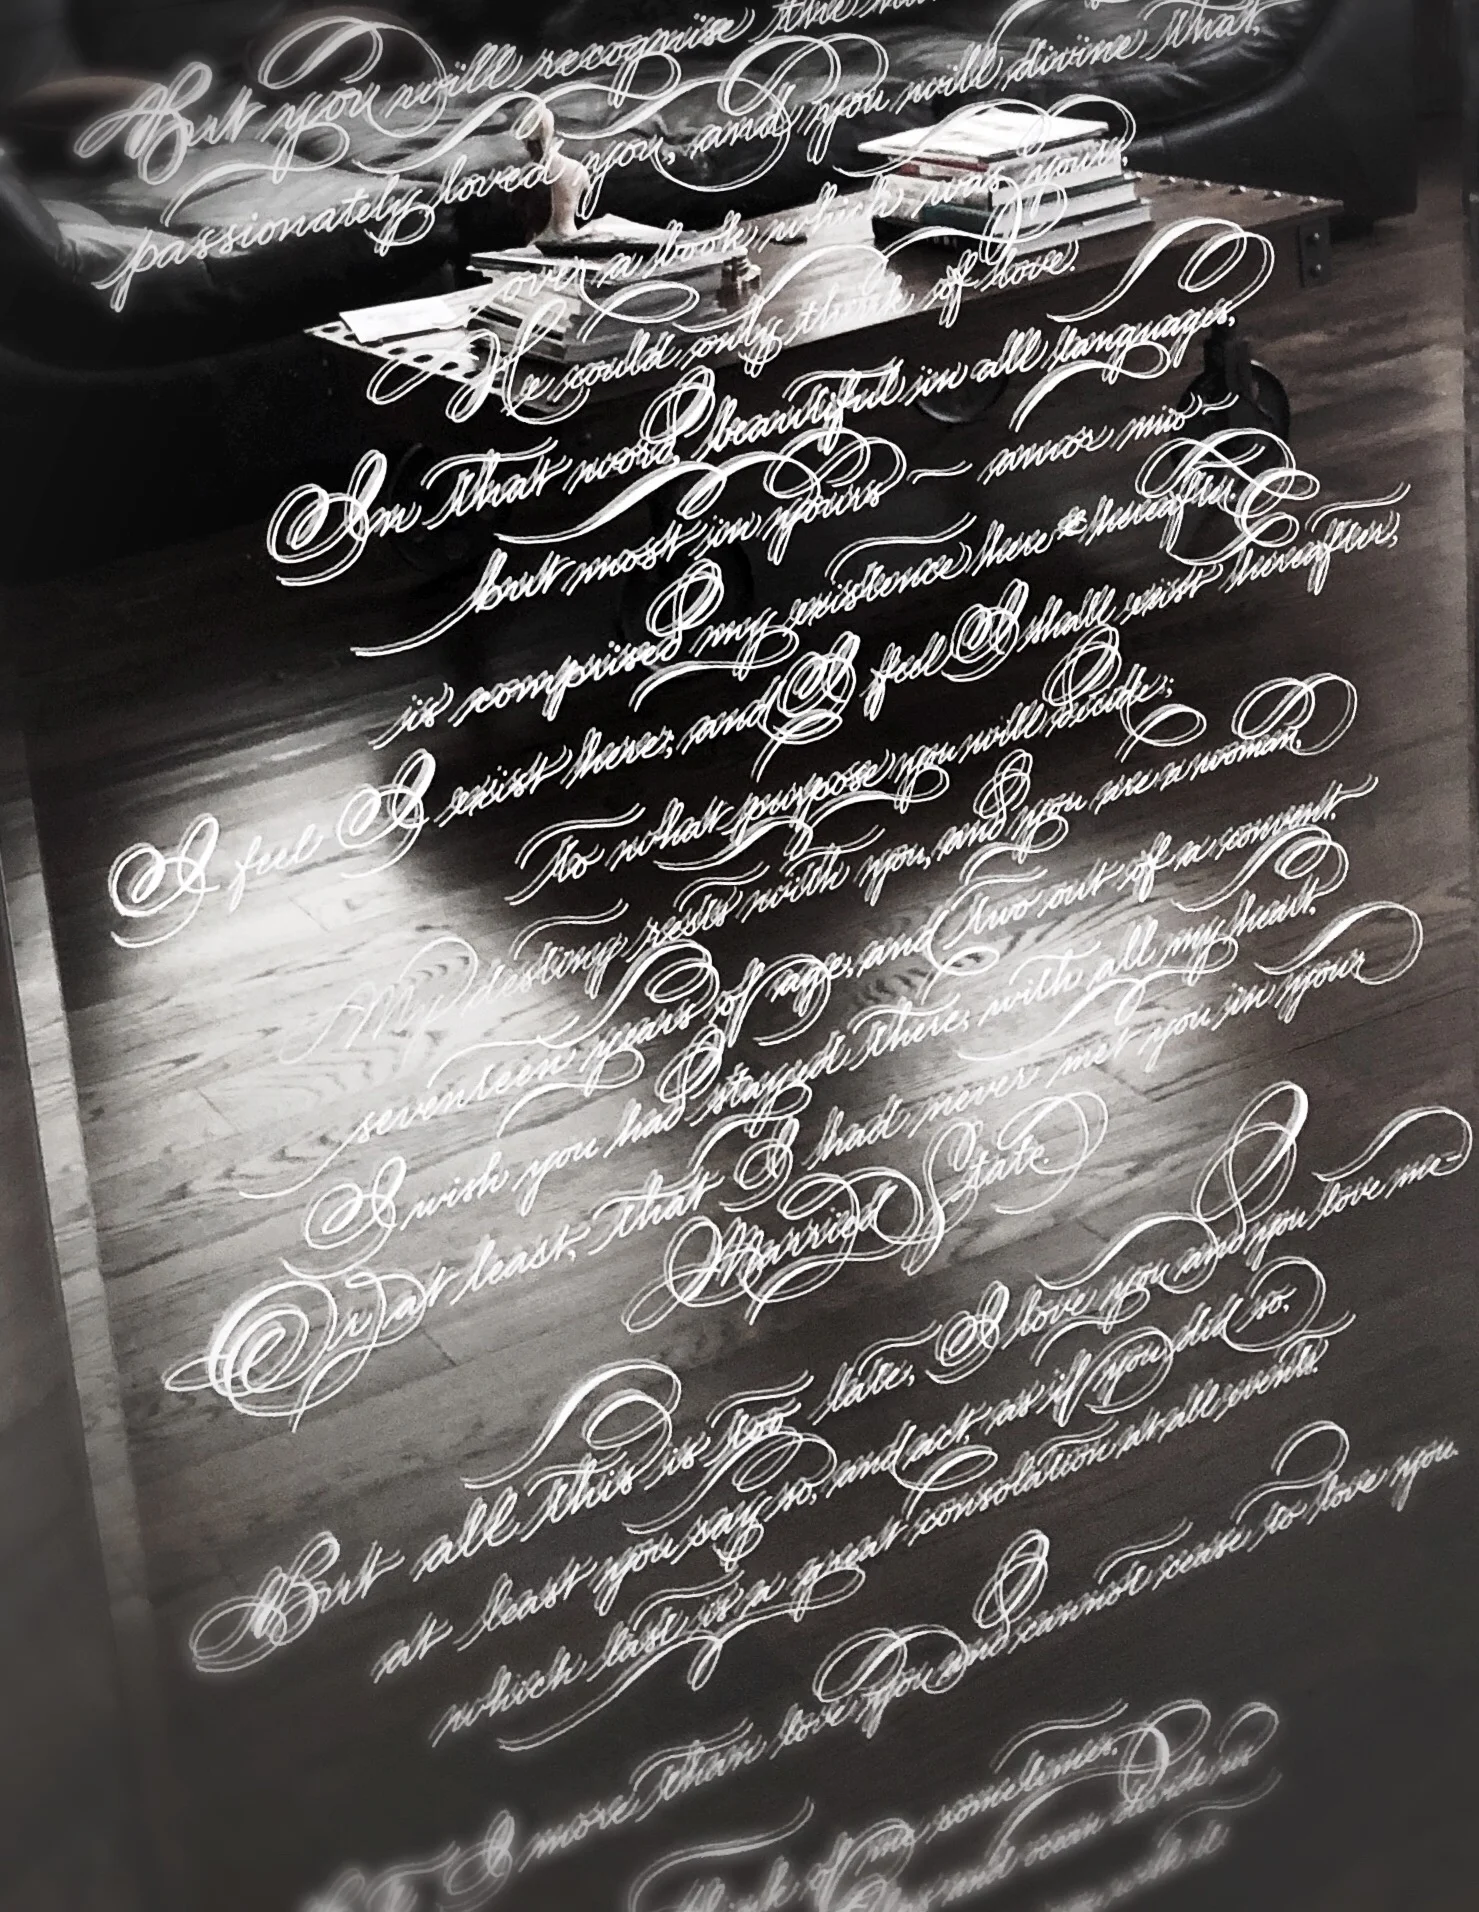 But you will recognise the
passionately loved you, and you will divine that,
over a book which was yours,
He could only think of love.
In that word, beautiful in all languages,
but most in yours ~ amor mio ~
is comprised my existence here & hereafter.
I feel I exist here, and I feel I shall exist hereafter,
To what purpose you will decide;
My destiny rests with you, and you are a woman,
seventeen years of age, and two out of a convent.
I wish you had stayed there, with all my heart,
Or at least, that I had never met you in your
Married State.
But all this is too late, I love you and you love me-
at least you say so, and act, as if you did so,
which last is a great consolation at all events.
I more than love you and cannot cease to love you.
Think of me sometimes,
and ocean divide us